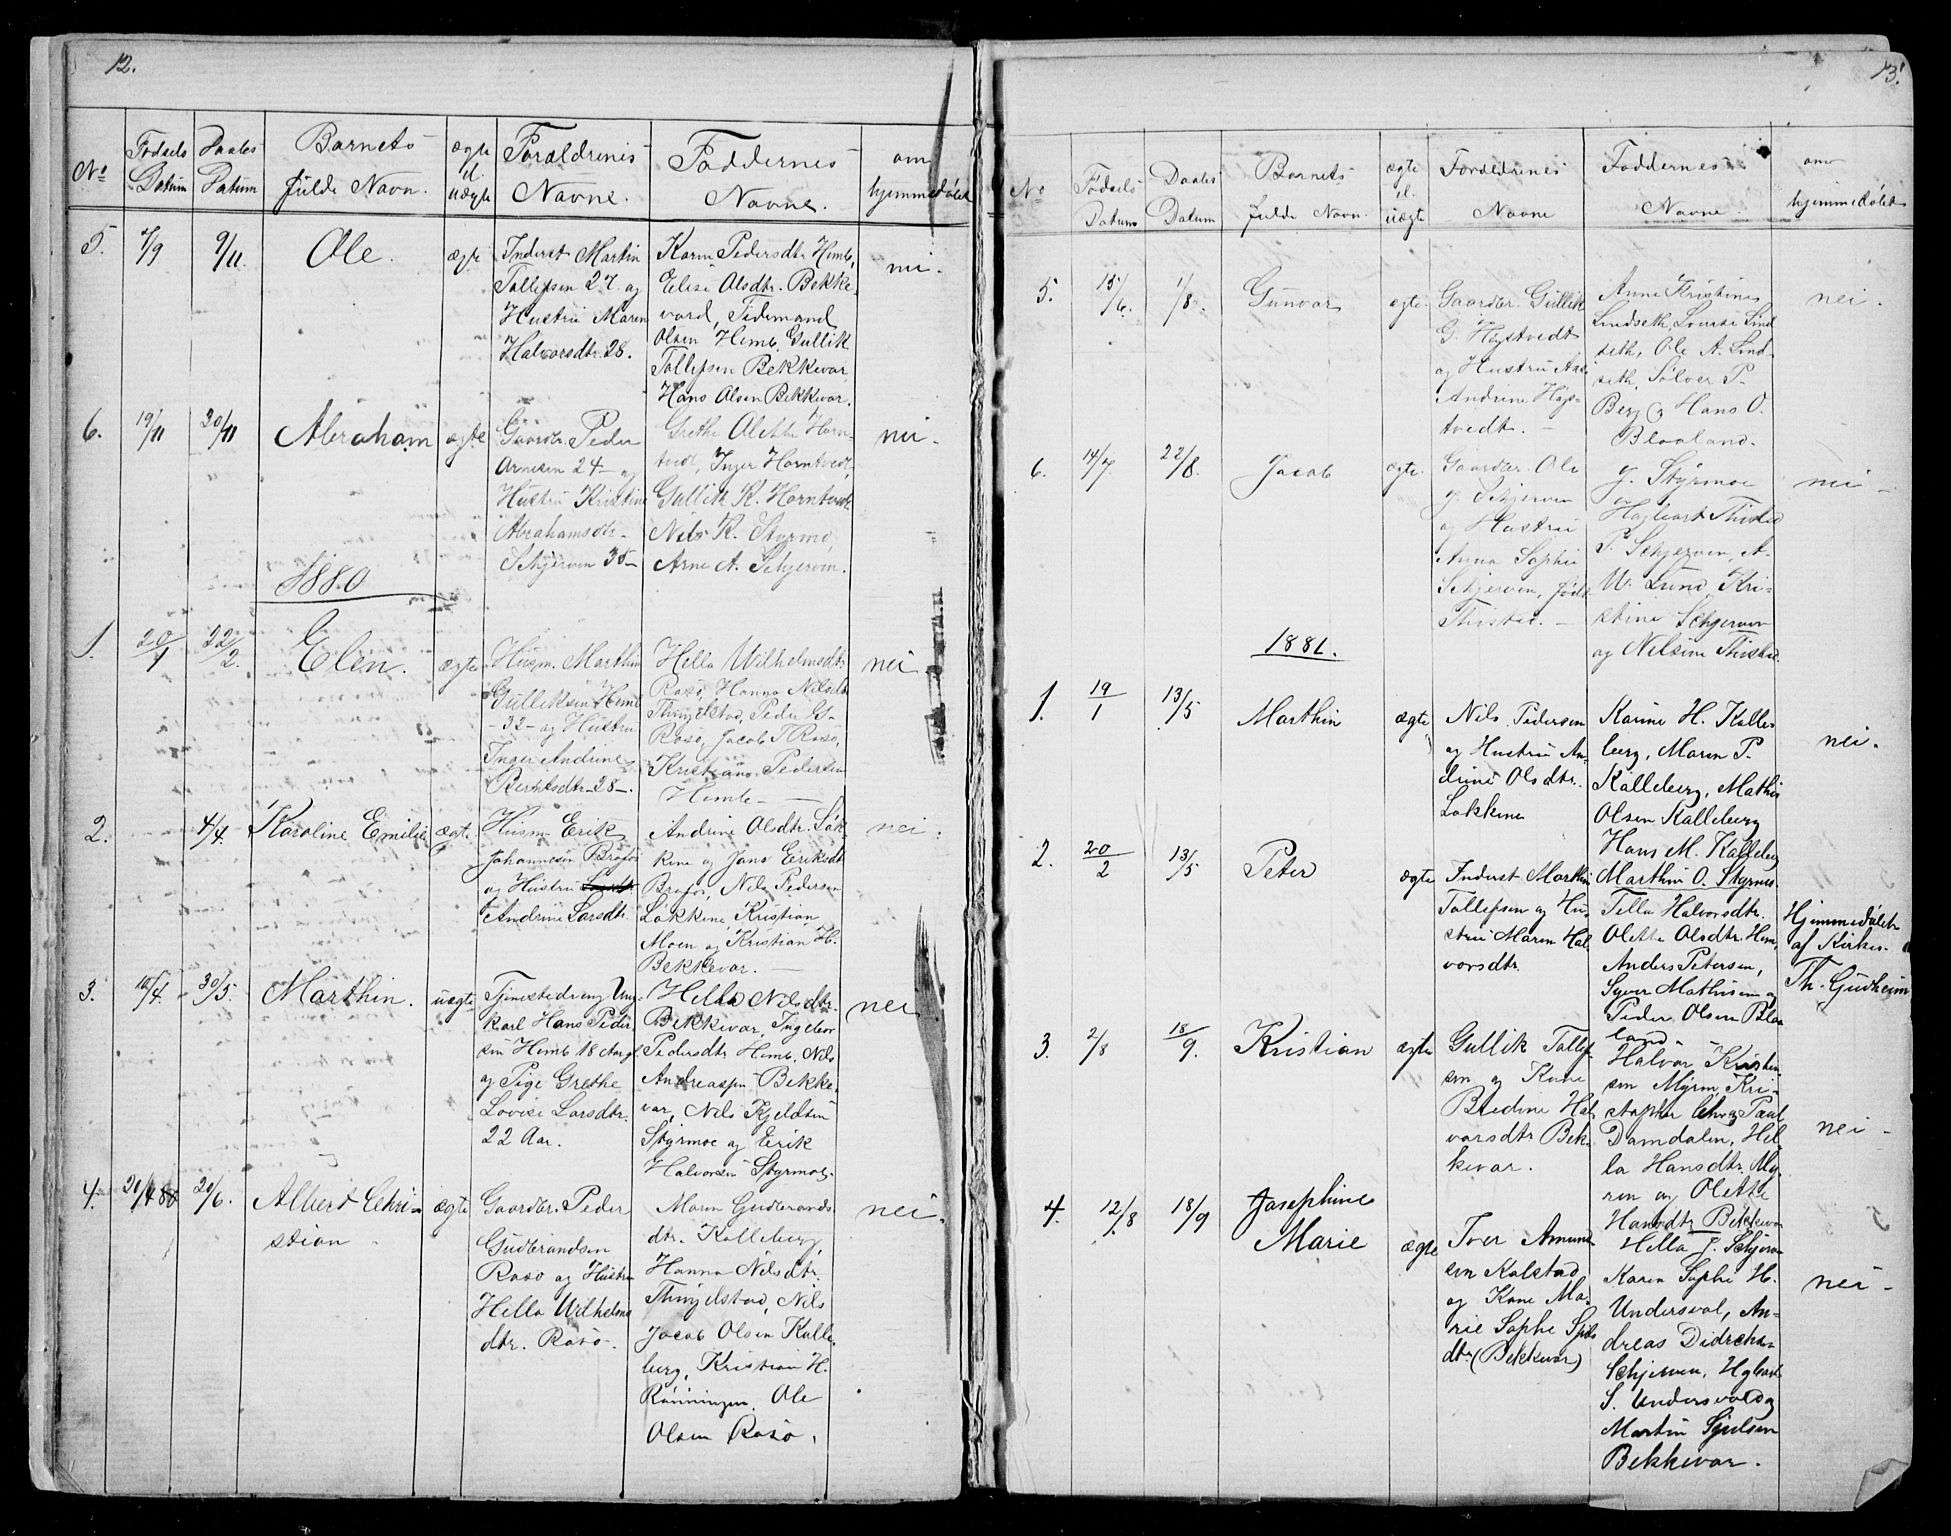 12.
No
Fødsels Datum
Daabs Datum
Barnets fulde Navn.
ægte el. uægte
Forældrenes Navne.
Faddernes Navne.
om hjemmedøbt
5. 7/9 9/11 Ole. ægte
Inderst Martin
Tollefsen 27 og
Hustru Maren
Halvorsdtr. 28.
Karen Pedersdtr Himb,
Elise Olsdtr. Bekke-
vard, Tidemand
Olsen Himb, Gullik
Tollefsen Bekkevar,
Hans Olsen Bekkevar.
nei.
6. 19/11 30/11 Abraham ægte
Gaardbr. Peder
Arnesen 24 – og
Hustru Kristine
Abrahamsdtr.
Schjerven 35 –
Grethe Olette Horn-
tvedt, Inger Horntvedt,
Gullik K. Horntvedt
Nils K. Styrmo,
Arne A. Schjerven.
nei.
1880
1. 20/1 22/2. Elen. ægte
Husm. Marthin
Gulliksen Himb
– 32 – og Hustru
Inger Andrine
Berntsdtr – 28 –.
Hella Wilhelmsdtr
Rasø, Hanna Nilsdtr
Thingelstad, Peder G.
Rasø, Jacob T Rasø,
Kristians Pedersen
Himb –
nei
2. 4/4. Karoline Emilie ægte.
Husm. Erik
Johannesen Brøfos
og Hustru
Andrine Larsdtr.
Andrine Olsdtr. Løk-
kene og Jans Eriksdtr
Brøfos, Nils Pedersen
Løkkene, Kristian
Moen og Kristian H.
Bekkevar. –
nei.
3. 10/4. 30/5. Marthin. uægte
Tjenestedreng Ung-
karl Hans Peder-
sen Himb 18 Aar gl.
og Pige Grethe
Lovise Larsdtr.
22 Aar.
Hella Nilsdtr.
Bekkevar, Ingebor
Pedersdtr Himb, Nils
Andreassen Bekke-
var, Nils Kjeldsen
Styrmoe og Erik
Halvorsen Styrmoe.
nei.
4. 20/4 80 20/6. Albert Chri-
stian ægte
Gaardbr. Peder
Gudbrandsen
Rasø og Hustru
Hella Wilhelms
dtr. Rasø.
Maren Gudbrands-
dtr. Kalleberg,
Hanna Nilsdtr.
Thingelstad, Nils
Jacob Olsen Kalle-
berg, Kristian H.
Rønningen, Ole
Olsen Rasø.
nei.
13.
No
Fødsels Datum
Daabs Datum
Barnets fulde Navn.
ægte el. uægte
Forældrenes Navne
Faddernes Navne
om hjemmedøbt
5. 15/6. 1/8. Gunvar ægte.
Gaardbr. Gullik
G. Høgstvedt
og Hustru
Andrine Høgs-
tvedt. –
Anne Kristine
Lindseth, Lovise Lind
seth, Ole A. Lind-
seth, Sølver P.
Berg og Hans O.
Blaaland.
nei.
6. 14/7. 22/8. Jacob ægte.
Gaardbr. Ole
J. Schjerven
og Hustru
Anna Sophie
Schjerven, født
Thistad. –
J. Styrmoe
og
Hagbart Thistad
P. Schjerven, A-
W. Lund, Kri-
stine Schjerven
og Nilsine Thistad.
nei –
1881.
1. 19/1 13/5 Marthin ægte
Nils Pedersen
og Hustru An-
drine Olsdtr.
Løkkene
Karine H. Kalle-
berg, Maren P.
Kalleberg, Mathis
Olsen Kalleberg
Hans M. Kalleberg
nei.
2. 20/2 13/5 Peter ægte
Inderst Marthin
Tollefsen og Hu-
stru Maren Hal
vorsdtr.
Marthin O. Styrmo.
Tella Halvorsdtr.
Olette Olsdtr. Himb,
Anders Petersen,
Syver Mathisen og
Peder Olsen Blaa
land.
Hjemmedøbt
af Kirkes.
Th. Gudheim
3. 2/8 18/9. Kristian ægte
Gullik Tollef-
sen og Kone
Bredine Hal-
vorsdtr Bek-
kevar.
Halvor Kristen
sen Myren, Kri-
stopher Paul
Damdalen, Hel-
la Hansdtr. My-
ren og Olette
Hansdtr Bekkevar
nei –
4. 12/8 18/9 Josephine
Marie ægte
Iver Amund-
sen Kalstad
og Kone Ma-
rie Sophe
dtr (Bekkevar)
Hella J. Schjerven
Karen Sophe H.
Undersval, An-
dreas Didreksen
Schjerven,
S. Undersval og
Martin Sjulsen
Bekkevar.
nei –